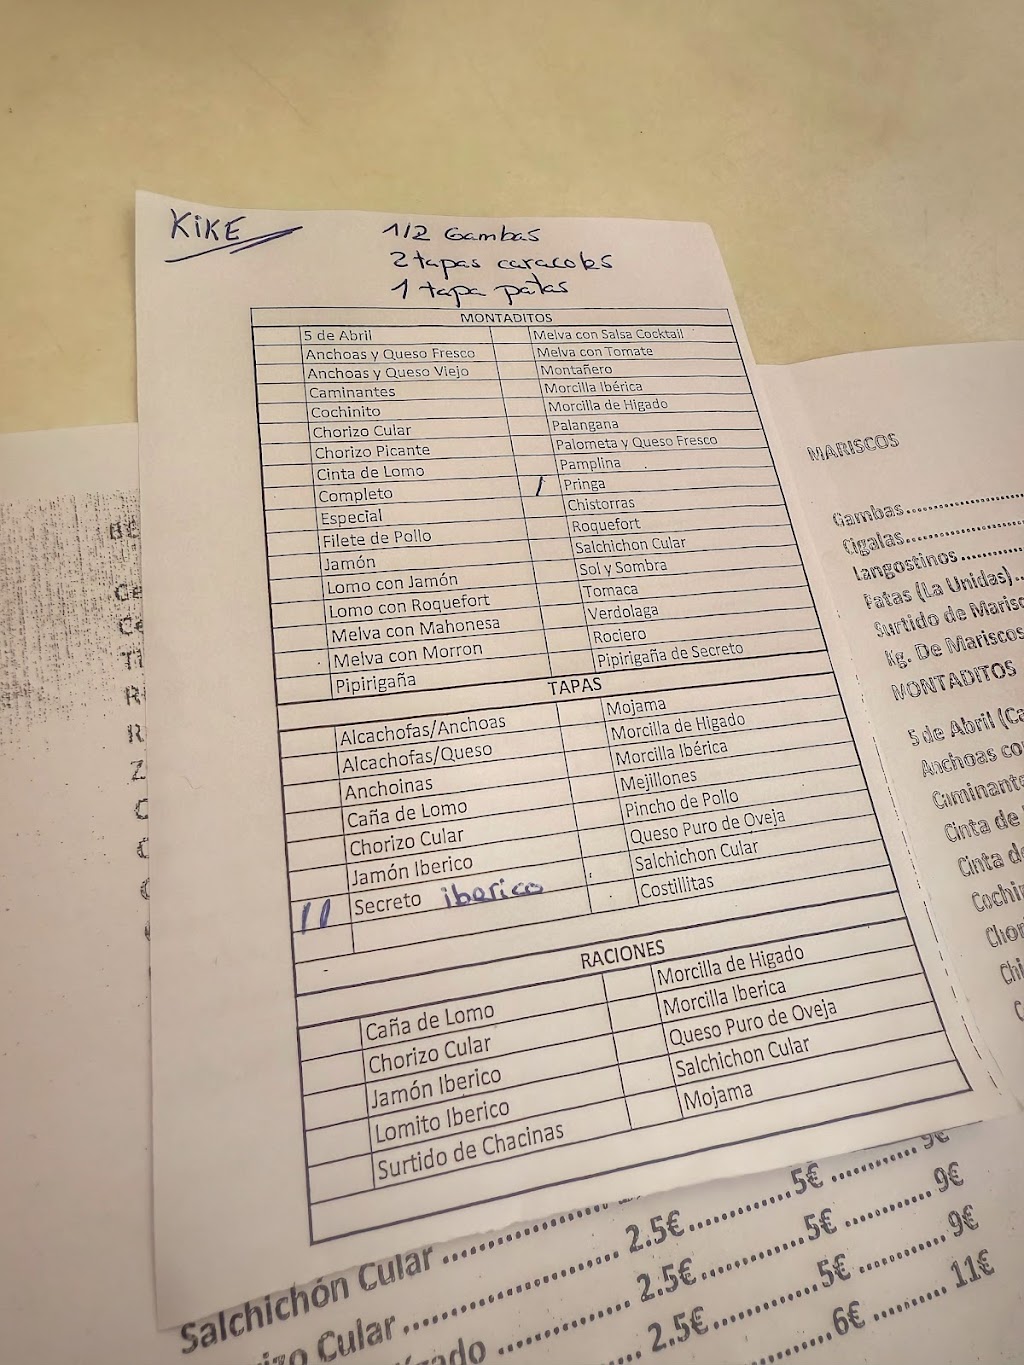 KiKE
1/2 Gambas
2 tapas caracoles
1 tapa patas
MONTADITOS
5 de Abril Melva con Salsa Cocktail
Anchoas y Queso Fresco Melva con Tomate
Anchoas y Queso Viejo Montañero
Caminantes Morcilla Ibérica
Cochinito Morcilla de Higado
Chorizo Cular Palangana
Chorizo Picante Palometa y Queso Fresco
Cinta de Lomo Pamplina
Completo / Pringa
Especial Chistorras
Filete de Pollo Roquefort
Jamón Salchichon Cular
Lomo con Jamón Sol y Sombra
Lomo con Roquefort Tomaca
Melva con Mahonesa Verdolaga
Melva con Morron Rociero
Pipirigaña Pipirigaña de Secreto
TAPAS
Alcachofas/Anchoas Mojama
Alcachofas/Queso Morcilla de Higado
Anchoinas Morcilla Ibérica
Caña de Lomo Mejillones
Chorizo Cular Pincho de Pollo
Jamón Iberico Queso Puro de Oveja
// Secreto iberico Salchichon Cular
Costillitas
RACIONES
Caña de Lomo Morcilla de Higado
Chorizo Cular Morcilla Iberica
Jamón Iberico Queso Puro de Oveja
Lomito Iberico Salchichon Cular
Surtido de Chacinas Mojama
MARISCOS
Gambas
Cigalas
Langostinos
Patas (La Unidas)
Surtido de Marisc
Kg. De Mariscos
MONTADITOS
5 de Abril (Ca
Anchoas co
Caminante
Cinta de
Cinta de
Cochin
Chor
Chi
5€ 9€
Salchichón Cular 2.5€ 5€ 9€
izo Cular 2.5€ 5€ 9€
2.5€ 6€ 11€